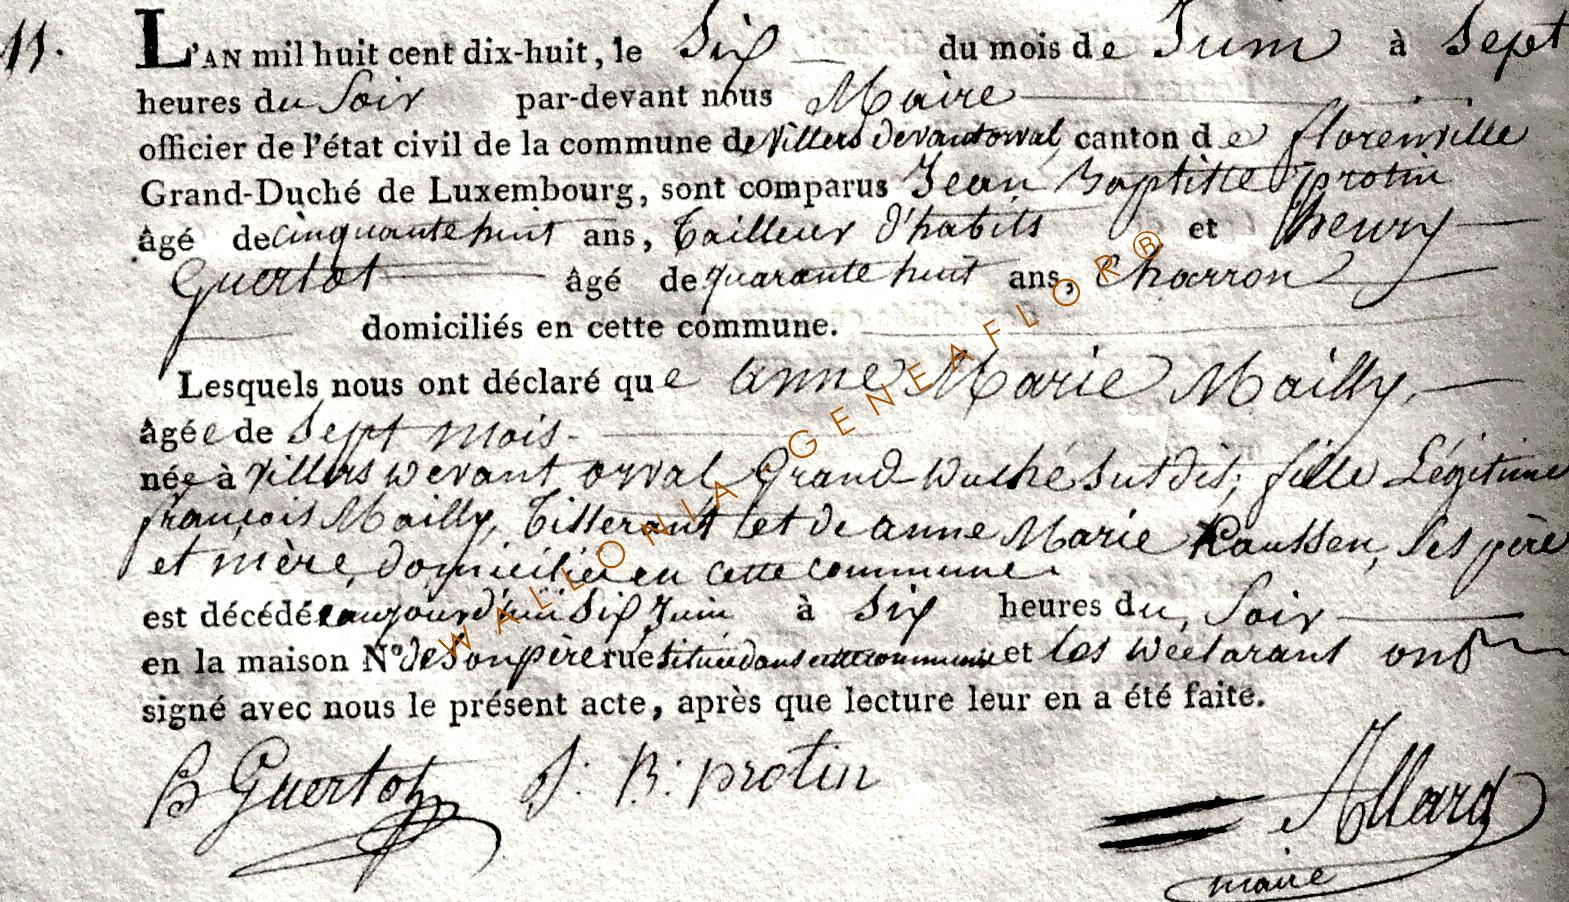 11. L'AN mil huit cent dix-huit, le Six du mois de Juin à Sept
heures du Soir par-devant nous Maire
officier de l'état civil de la commune de Villers devant orval, canton de florenville
Grand-Duché de Luxembourg, sont comparus Jean Baptitte protin
âgé de cinquante huit ans, Tailleur d'habits et henry
Guertot âgé de quarante huit ans, Charron
domiciliés en cette commune.
Lesquels nous ont déclaré que anne Marie Mailly,
âgée de Sept mois
née à Villers Devant orval Grand Duché Susdit, fille Légitime
françois Mailly, Tisserant et de anne Marie Kaussen, Ses père
et mère, domicilié en cette commune.
est décédée aujourd'hui Six Juin à Six heures du Soir
en la maison N° de Son père rue Située dans cette commune et les Déclarant ont
signé avec nous le présent acte, après que lecture leur en a été faite.
Guertot J: B: protin Allard
maire
WALLONIA-GENEAFLOR®